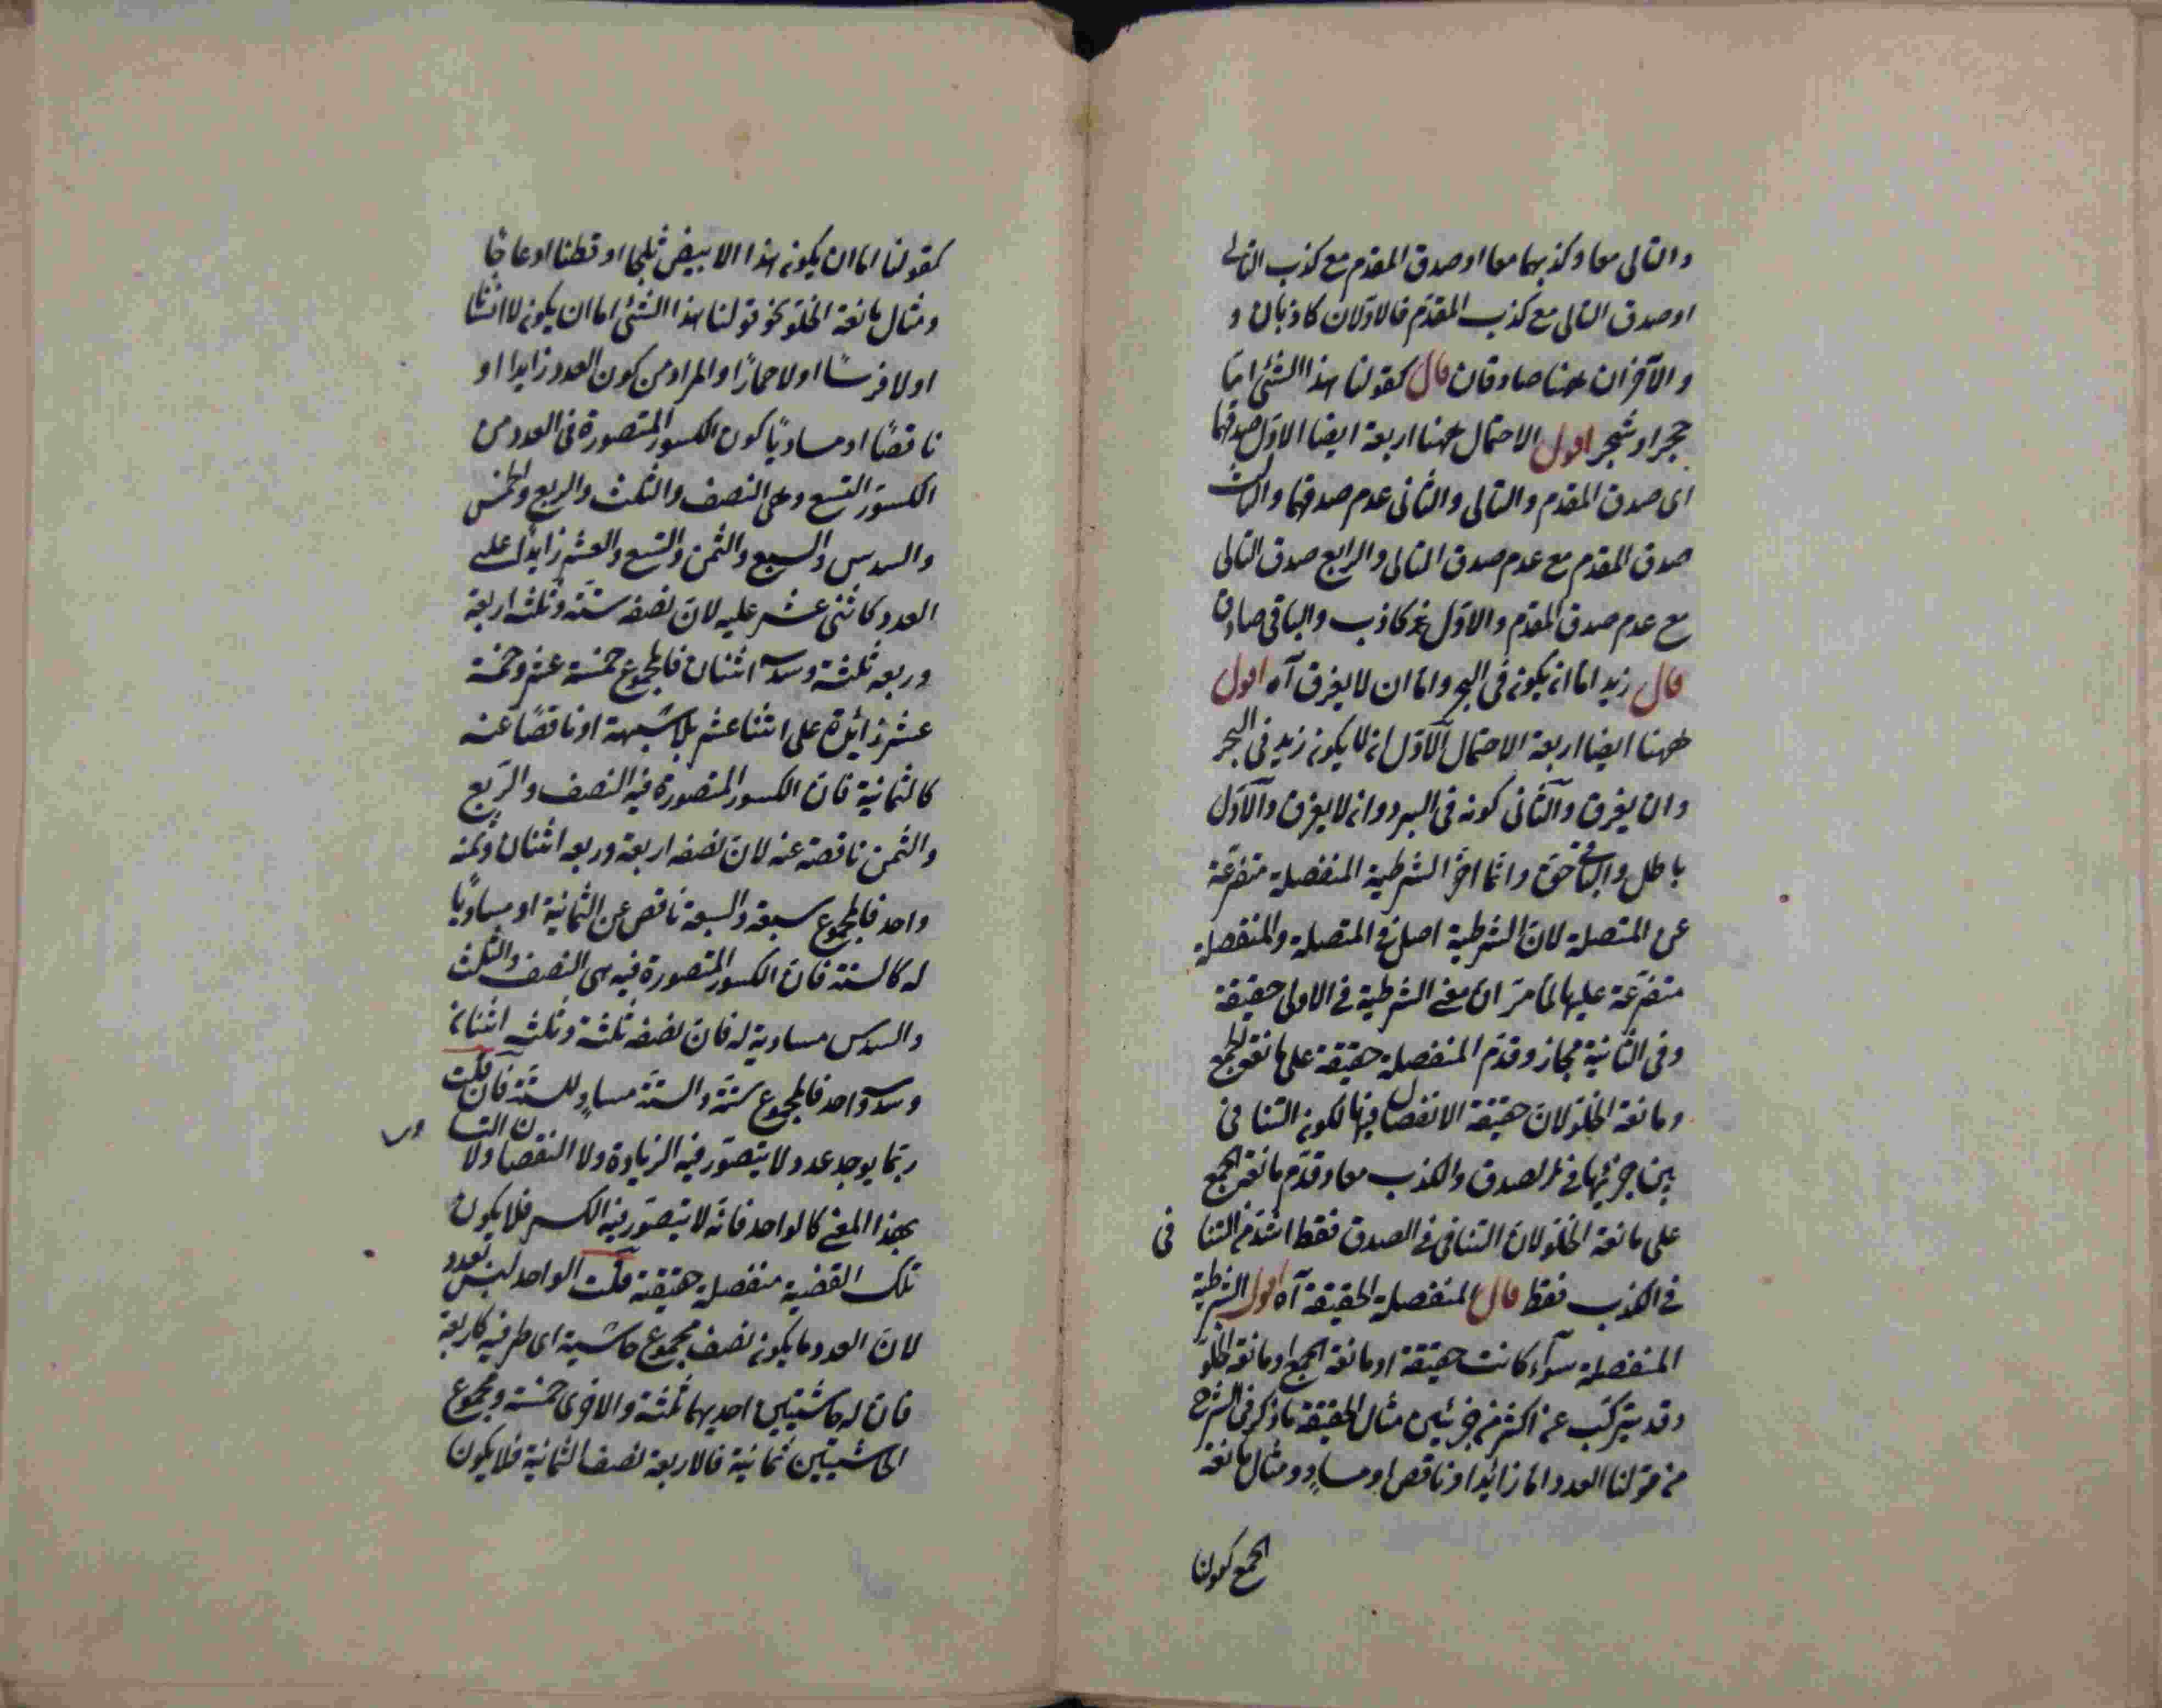 والتالى معا وكذبهما معا او صدق المقدم مع كذب التالى
او صدق التالى مع كذب المقدم فالاولان كاذبان و
والآخران ههنا صادقان قال كقولنا هذا الشئ اما
حجر او شجر اقول الاحتمال ههنا اربعة ايضا الاول صدقهما
اى صدق المقدم والتالى والثانى عدم صدقهما والثالث
صدق المقدم مع عدم صدق التالى والرابع صدق التالى
مع عدم صدق المقدم والاول كاذب والباقى صادق
قال زيد اما ان يكون فى البحر واما ان لا يغرق آه اقول
ههنا ايضا اربعة الاحتمال الاول ان لا يكون زيد فى البحر
وان يغرق والثانى كونه فى البر وان لا يغرق والاول
باطل والباقى حق وانما اخر الشرطية المنفصلة متفرعة
عن المتصلة لان الشرطية اصل فى المتصلة والمنفصلة
متفرعة عليها لما مر ان معنى الشرطية فى الاولى حقيقة
وفى الثانية مجاز وقدم المنفصلة حقيقة على مانعة الجمع
ومانعة الخلو لان حقيقة الانفصال فيها لكون التنافى
بين جزئيها فى الصدق والكذب معا وقدم مانعة الجمع
على مانعة الخلو لان التنافى فى الصدق فقط اشد من التنافى
فى الكذب فقط قال المنفصلة الحقيقة آه اقول الشرطية
المنفصلة سوآء كانت حقيقة او مانعة الجمع او مانعة الخلو
وقد يتركب عن اكثر من جزئين مثال الحقيقة ما ذكر فى الشرح
من قولنا العدد اما زائد او ناقص او مساوٍ ومثال مانعة
الجمع كقولنا
كقولنا اما ان يكون هذا الابيض ثلجا او قطنا او عاجًا
ومثال مانعة الخلو نحو قولنا هذا الشئ اما ان يكون لا انسانا
او لا فرسًا او لا حمارًا والمراد من كون العدد زايدا او
ناقصًا او مساويًا كون الكسور المتصورة فى العدد من
الكسور التسع وهى النصف والثلث والربع والخمس
والسدس والسبع والثمن والتسع والعشر زايدًا على
العدد كاثنى عشر عليه لان نصفه ستة وثلثه اربعة
وربعه ثلثة وسدسه اثنان فالمجموع خمسة عشر وخمسة
عشر زائدة على اثنا عشر بلا شبهة او ناقصًا عنه
كالثمانية فان الكسور المتصورة فيه النصف والربع
والثمن ناقصة عنه لان نصفه اربعة وربعه اثنان وثمنه
واحد فالمجموع سبعة والسبعة ناقص عن الثمانية او مساويًا
له كالستة فان الكسور المتصورة فيه هى النصف والثلث
والسدس مساوية له فان نصفه ثلثة وثلثه اثنان
وسدسه واحد فالمجموع ستة والستة مساوٍ للستة فان قلت
ربما يوجد عدد لا يتصور فيه الزيادة ولا النقصان ولا التساوى
بهذا المعنى كالواحد فانه لا يتصور فيه الكسر فلا يكون
تلك القضية منفصلة حقيقة قلت الواحد ليس بعدد
لان العدد ما يكون نصف مجموع حاشيته اى طرفيه كاربعة
فان له حاشيتين احديهما ثلثة والاخرى خمسة ومجموع
الحاشيتين ثمانية فالاربعة نصف الثمانية فلا يكون